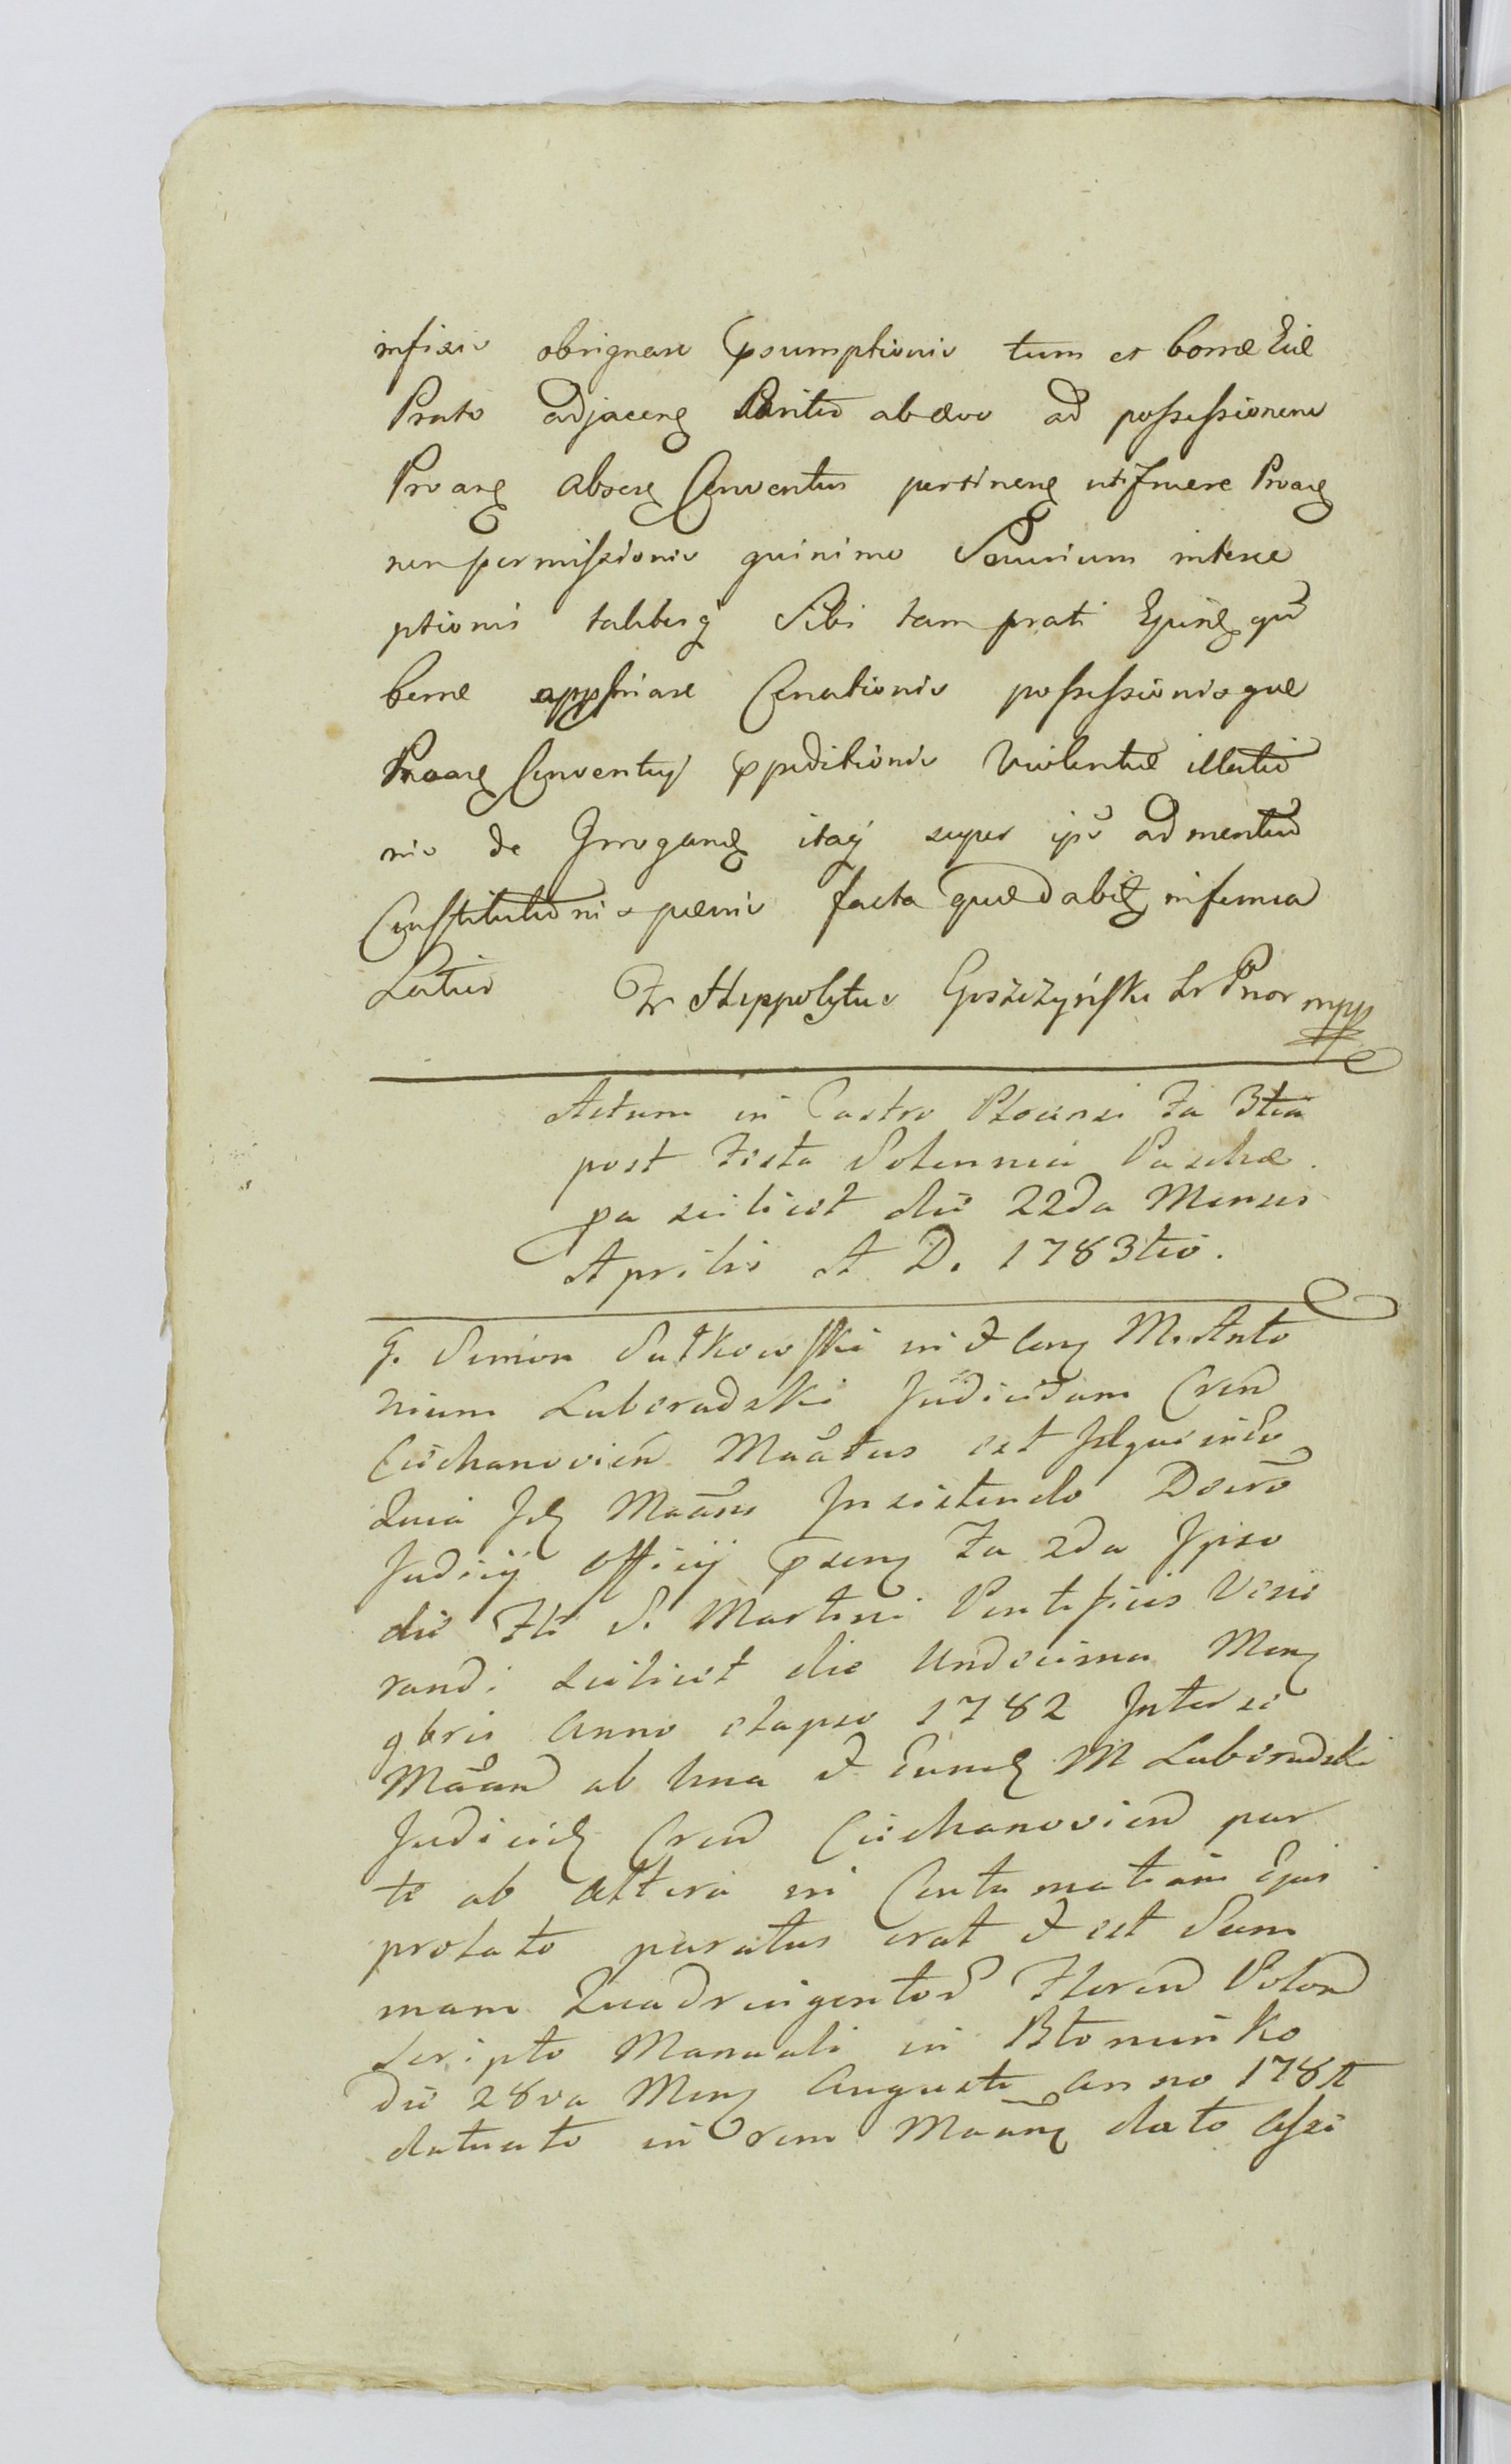 infixio obrignare Psumptionis tum et borræ Eiæ
Prato adjaceng Paritio abævo ad possessionem
Proang absere Conventus pertineng utifruere Proang
non permissionis quinimo Seuirium interce
ptionis talibusq Sibi tam prati Ejusd qu
berræ appriare Conationis possessionisque
Proang Conventus Ppeditionis Violentiæ illatio
nis de Jrrogand itaq super ipso ad mentem
Constitutionis pænis facta quædabit inferius
Latius Fr Hippolytus Goszczyński Lr Prior mpp
Actum in Castro Plocensi Fa 3tia
post Festa Solennia Paschæ
pa scilicet die 22da Mensis
Aprilis A D. 1783tio.
G. Simon Sutkowski in et cong M. Anto
nium Luberadzki Judicidam Cren
Ciechanovien Maatus est Jdque ideo
Quia Jd Maans Jnsistendo Decreto
Judicij Officij Pseng Fa 2da Jpso
die Fti S. Martini Pontificis Vene
randi scilicet die Undecima Mens
9bris Anno elapso 1782 Inter se
Maan ab una et Eund M Luberadzki
Judicid Cren Ciechanovien par
te ab altera in Contumatiam Ejus
prolato paratus erat et est Sum
mam Quadringentor Floren Polon
Scripto Manuali in Blominko
die 28va Mens Augusti Anno 178
datuato in rem Maang dato assi